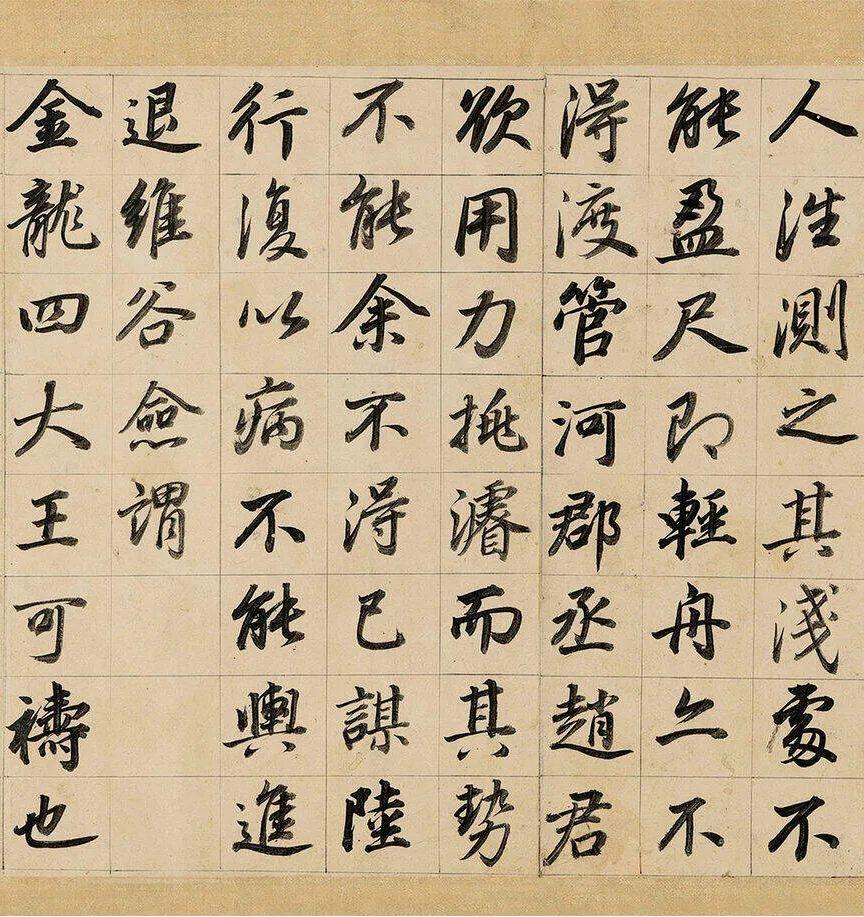 人往測之其淺處不
能盈尺即輕舟亦不
得渡管河郡丞趙君
欲用力挑濬而其勢
不能余不得已謀陸
行復以病不能輿進
退維谷僉謂
金龍四大王可禱也